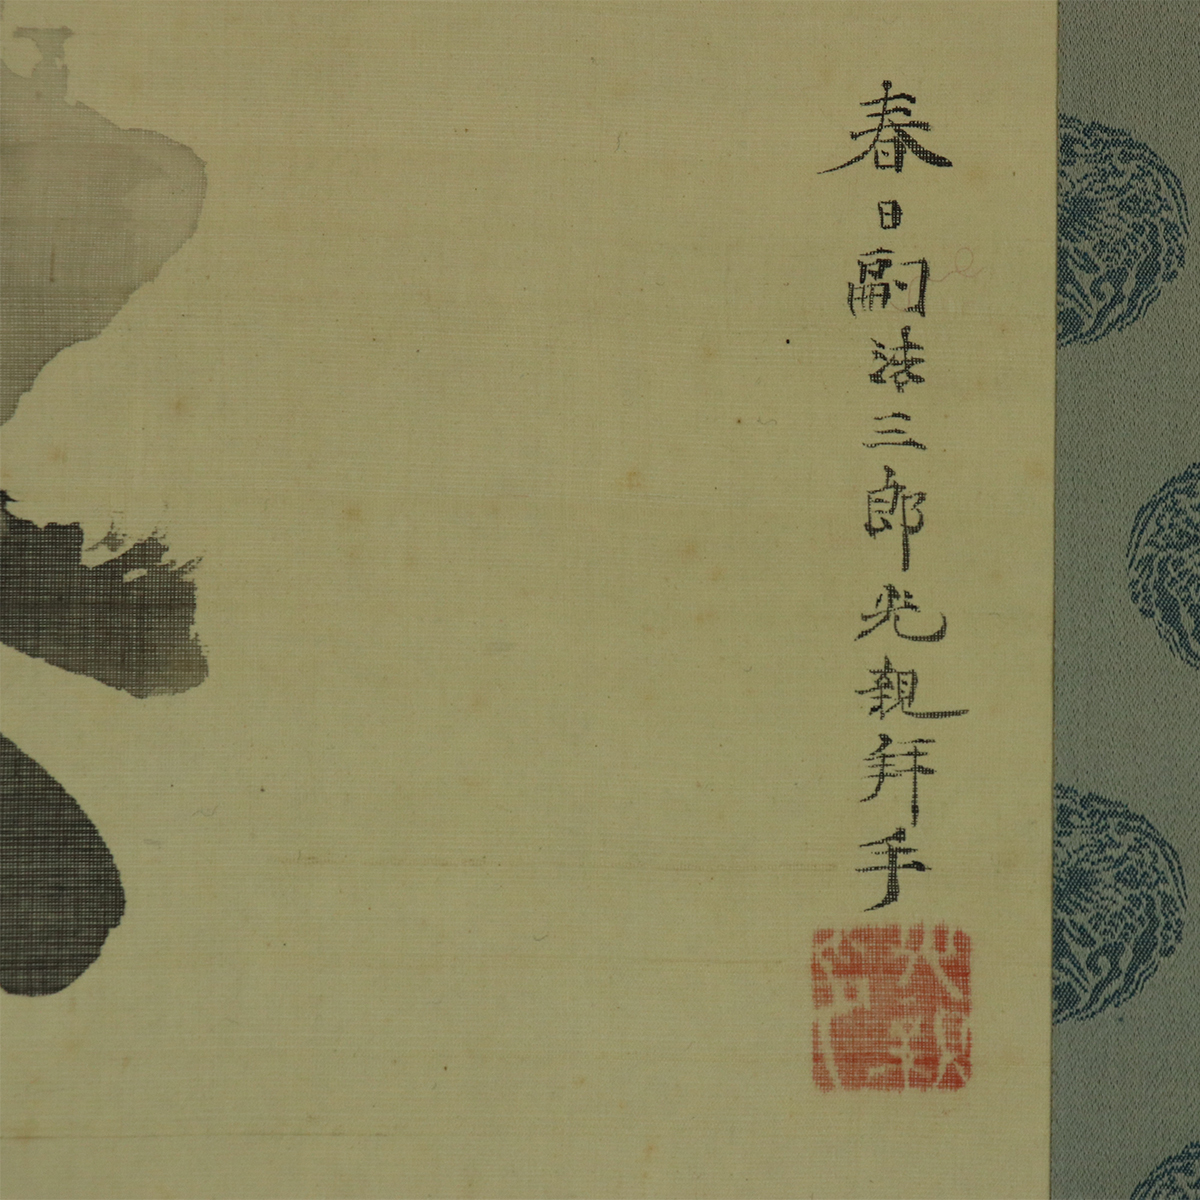 春日嗣法三郎光親拜手